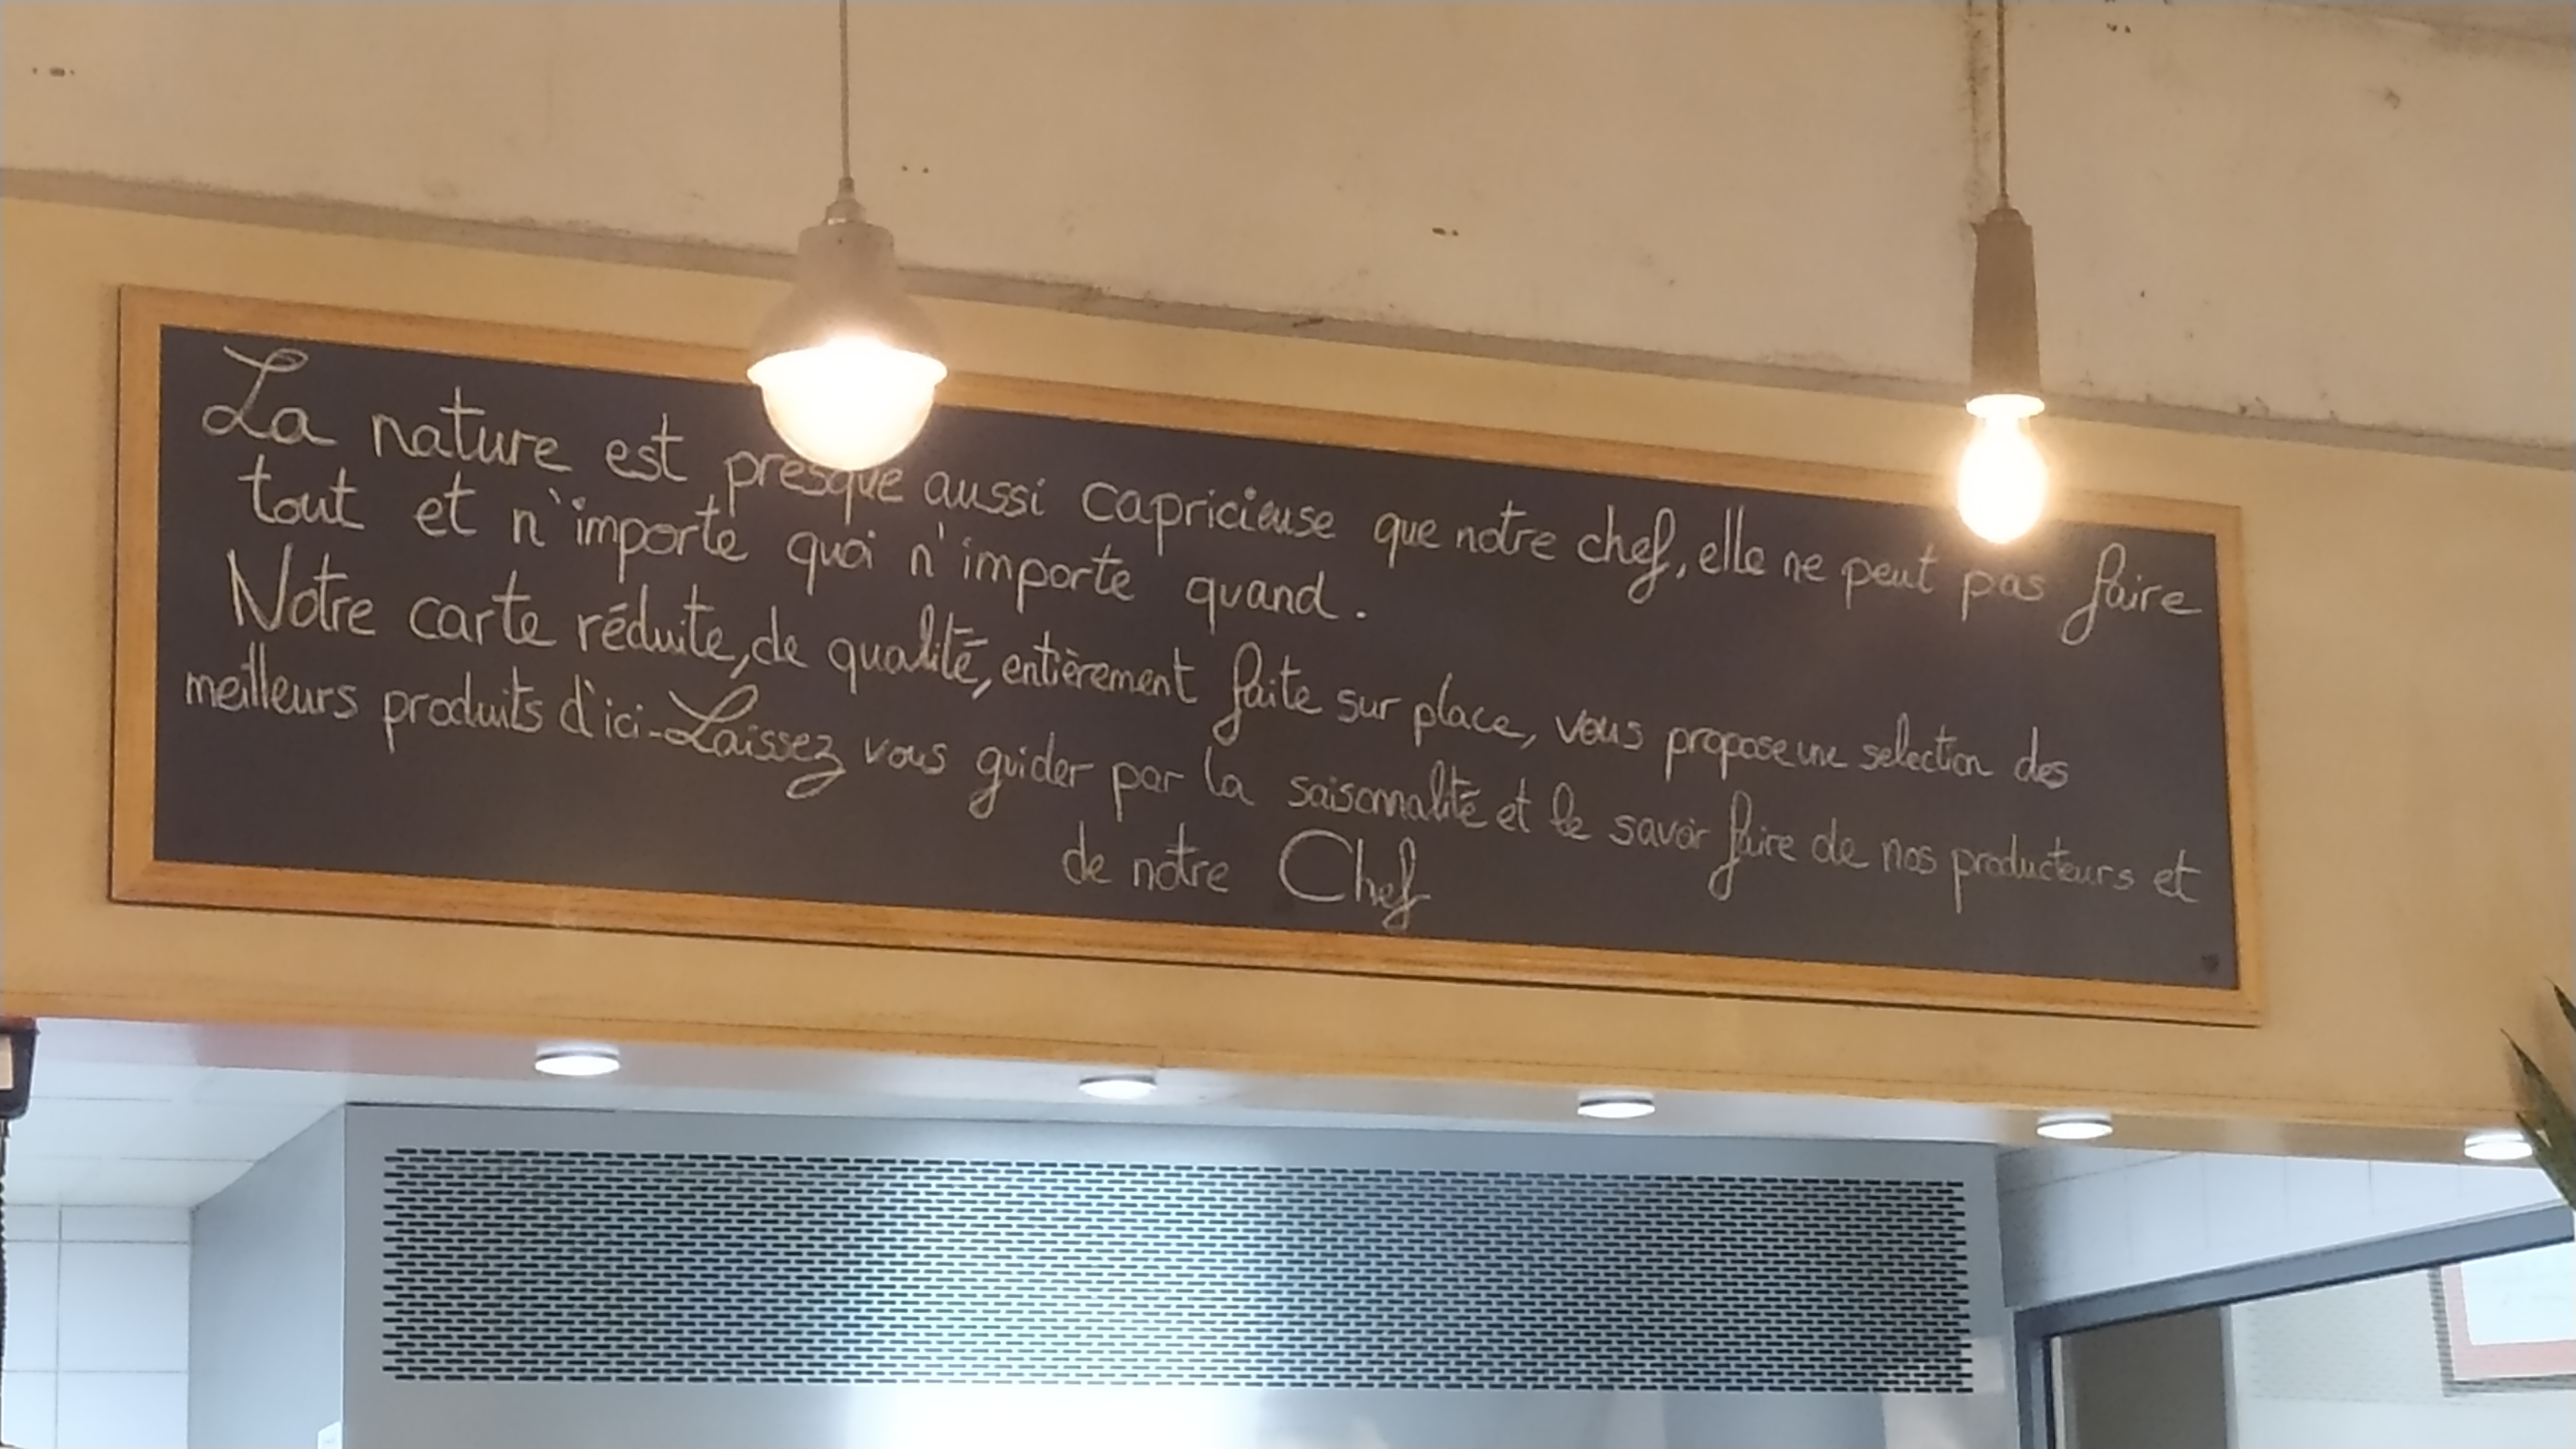 La nature est presque aussi capricieuse que notre chef, elle ne peut pas faire
tout et n'importe quoi n'importe quand.
Notre carte réduite, de qualité, entièrement faite sur place, vous propose une selection des
meilleurs produits d'ici - Laissez vous guider par la saisonnalité et le savoir faire de nos producteurs et
de notre Chef